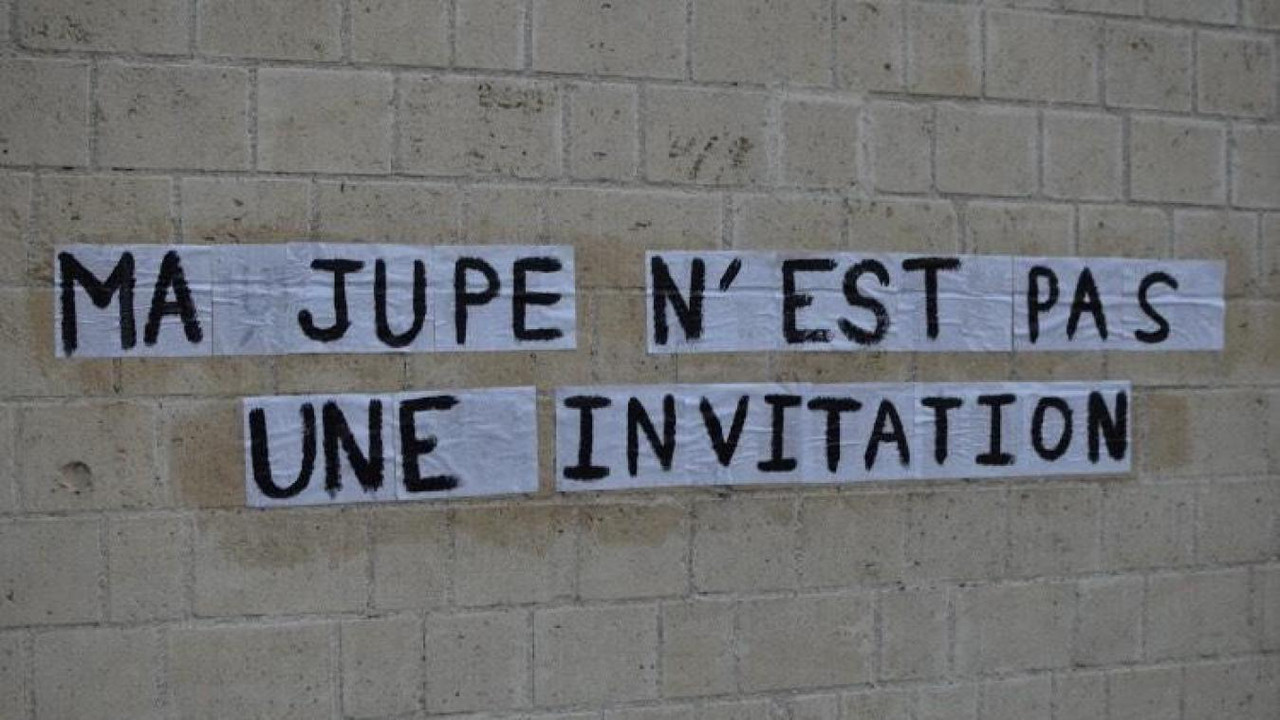 MA JUPE N'EST PAS
UNE INVITATION